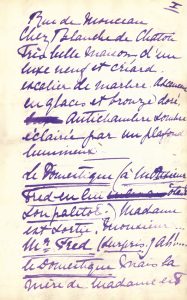 I
Rue de Monceau
Chez Blanche de Chatou
Très belle maison d'un
luxe neuf et criard.
escalier de marbre
en glaces et bronze doré.
Antichambre
éclairée par un plafond
lumineux.
Le Domestique (à un Monsieur
Fred en lui
son paletot). Madame
est sortie, monsieur...
Mr Fred (surpris) Ah!...
le Domestique Mais la
mère de Madame est